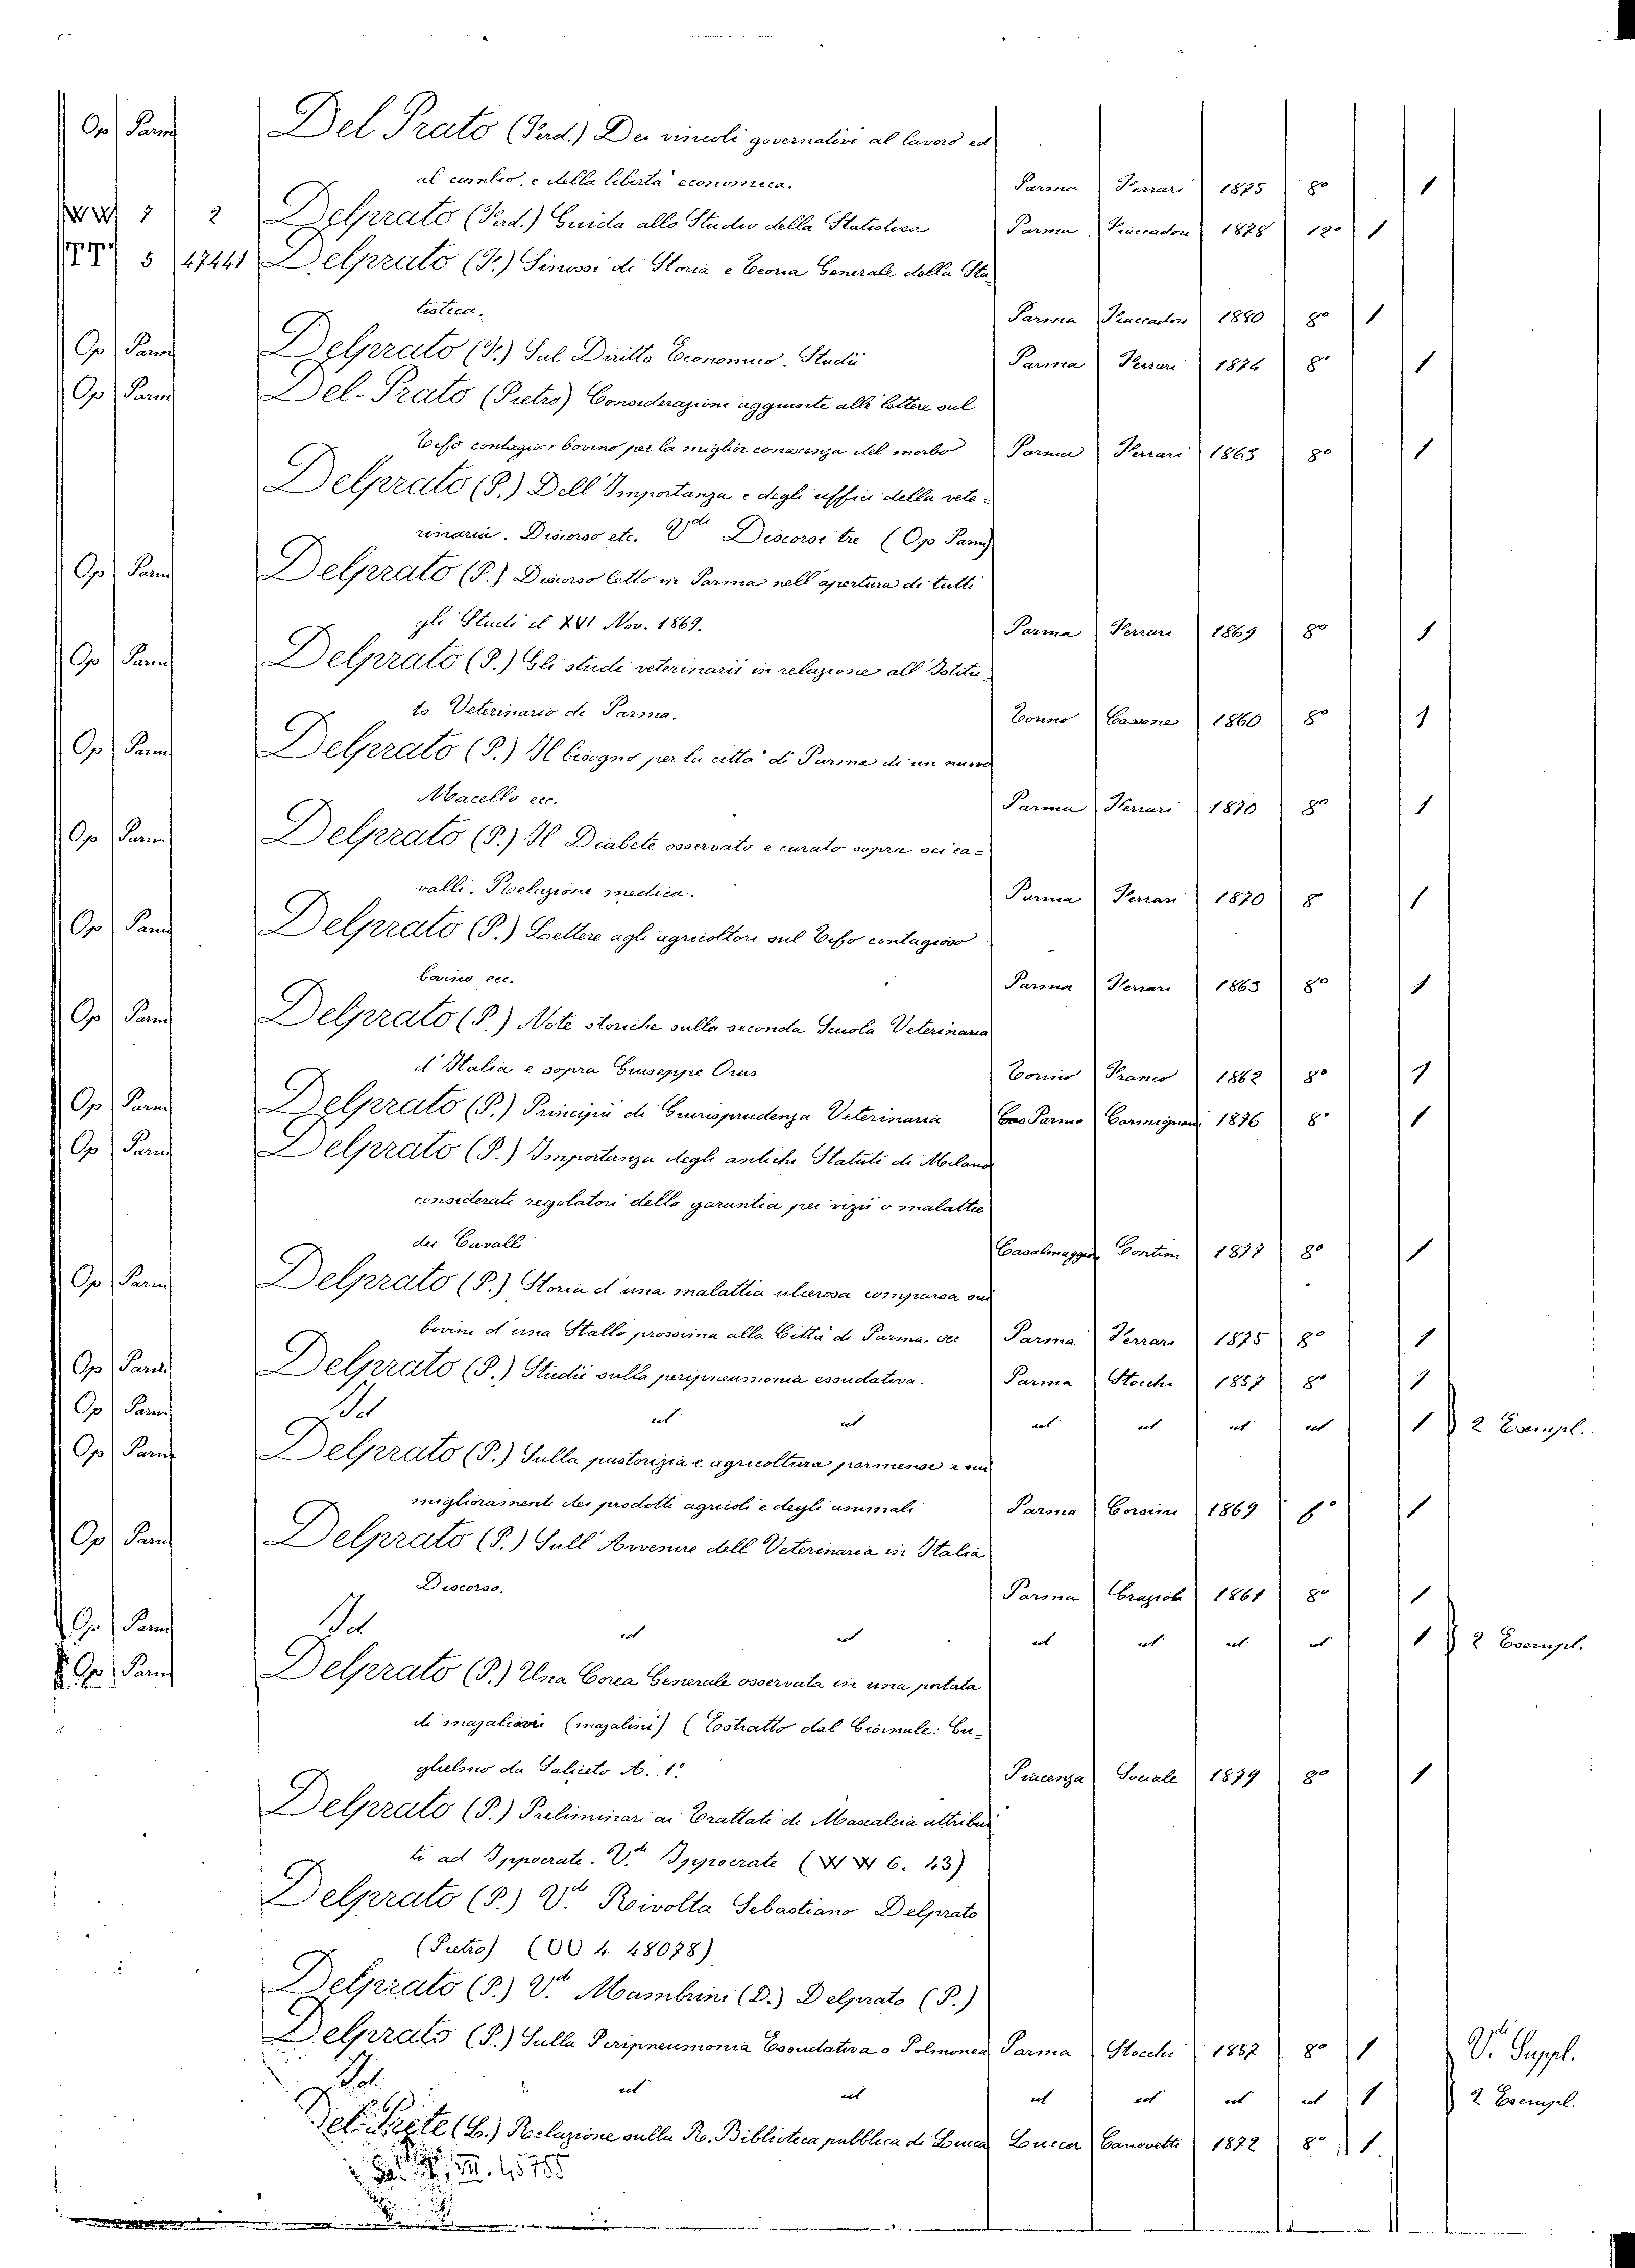 Op Parm Del Prato (Ferd.) Dei vincoli governativi al lavoro ed
al cambio, e della libertà economica. Parma Ferrari 1875 8º 1
2 Delprato (Ferd.) Guida allo Studio della Statistica Parma Fiaccadori 1878 12º 1
5 47441 Delprato (F.) Sinossi di Storia e Teoria Generale della Sta
tistica. Parma Fiaccadori 1880 8º 1
Op Parm Delprato (F.) Sul Diritto Economico. Studii Parma Ferrari 1876 8º 1
Op Parm Del-Prato (Pietro) Considerazioni aggiunte alle lettere sul
Tifo contagioso bovino per la miglior conoscenza del morbo Parma Ferrari 1863 8º 1
Delprato (P.) Dell'Importanza e degli uffici della vete-
rinaria. Discorso etc. Vdi Discorsi tre (Op Parm)
Op Parm Delprato (P.) Discorso letto in Parma nell'apertura di tutti
gli Studi il XVI Nov. 1869. Parma Ferrari 1869 8º 1
Op Parm Delprato (P.) Gli studi veterinarii in relazione all'Istitu-
to Veterinario di Parma. Torino Cassone 1860 8º 1
Op Parm Delprato (P.) Il bisogno per la città di Parma di un nuovo
Macello ecc. Parma Ferrari 1870 8º 1
Op Parm Delprato (P.) Il Diabete osservato e curato sopra sei ca-
valli. Relazione medica. Parma Ferrari 1870 8 1
Op Parm Delprato (P.) Lettere agli agricoltori sul Tifo contagioso
bovino ecc. Parma Ferrari 1863 8º 1
Op Parm Delprato (P.) Note storiche sulla seconda Scuola Veterinaria
d'Italia e sopra Giuseppe Orus Torino Franco 1862 8º 1
Op Parm Delprato (P.) Principii di Giurisprudenza Veterinaria Parma Carmignani 1876 8º 1
Op Parm Delprato (P.) Importanza degli antichi Statuti di Milano
considerati regolatori dello garantia pei vizii o malattie
dei Cavalli Casalmaggiore Contini 1877 8º 1
Op Parm Delprato (P.) Storia d'una malattia ulcerosa comparsa sui
bovini d'una Stalla prossima alla Città di Parma ecc Parma Ferrari 1875 8º 1
Op Parm Delprato (P.) Studii sulla peripneumonia essudativa. Parma Stocchi 1857 8º 1
Op Parm Id id id id id id id 1 2 Esempl.
Op Parm Delprato (P.) Sulla pastorizia e agricoltura parmense e sui
miglioramenti dei prodotti agricoli e degli animali Parma Corsini 1869 1
Op Parm Delprato (P.) Sull'Avvenire dell Veterinaria in Italia
Discorso. Parma Grazioli 1861 8º 1
Op Parm Id id id id id id id 1 2 Esempl.
Op Parm Delprato (P.) Una Corea Generale osservata in una portata
di (majalini) (Estratto dal Giornale: Gu-
glielmo da Saliceto A. 1º Piacenza Sociale 1879 8º 1
Delprato (P.) Preliminari ai Trattati di Mascalcia attribui
ti ad Ippocrate. Vdi Ippocrate (W W 6. 43)
Delprato (P.) Vdi Rivolta Sebastiano Delprato
(Pietro) (UU 4 48078)
Delprato (P.) Vdi Mambrini (D.) Delprato (P.)
Delprato (P.) Sulla Peripneumonia Essudativa o Polmonea Parma Stocchi 1857 8º 1 Vdi Suppl.
Id. id id id id id id 1 2 Esempl.
Del Prete (L.) Relazione sulla R. Biblioteca pubblica di Lucca Lucca Canovetti 1872 8º 1